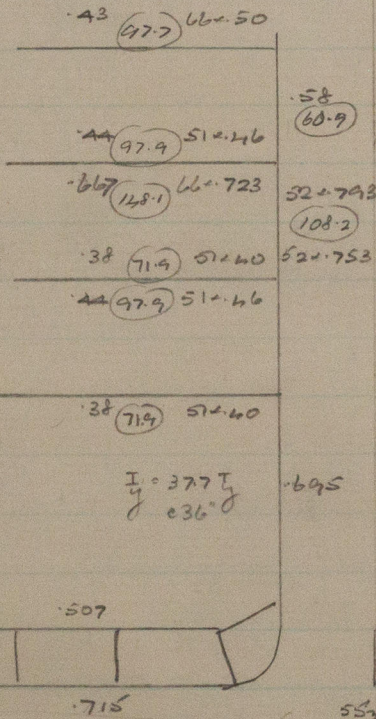 .43 97.7 66×.50
.58
60.9
.44 97.9 51×.46
.667 148.1 66×.723 52×.793
108.2
.38 71.9 51×.40 52×.753
.44 97.9 51×.46
.38 71.9 51×.40
I/y = 37.7 T/y .695
@36"
.507
.715 55